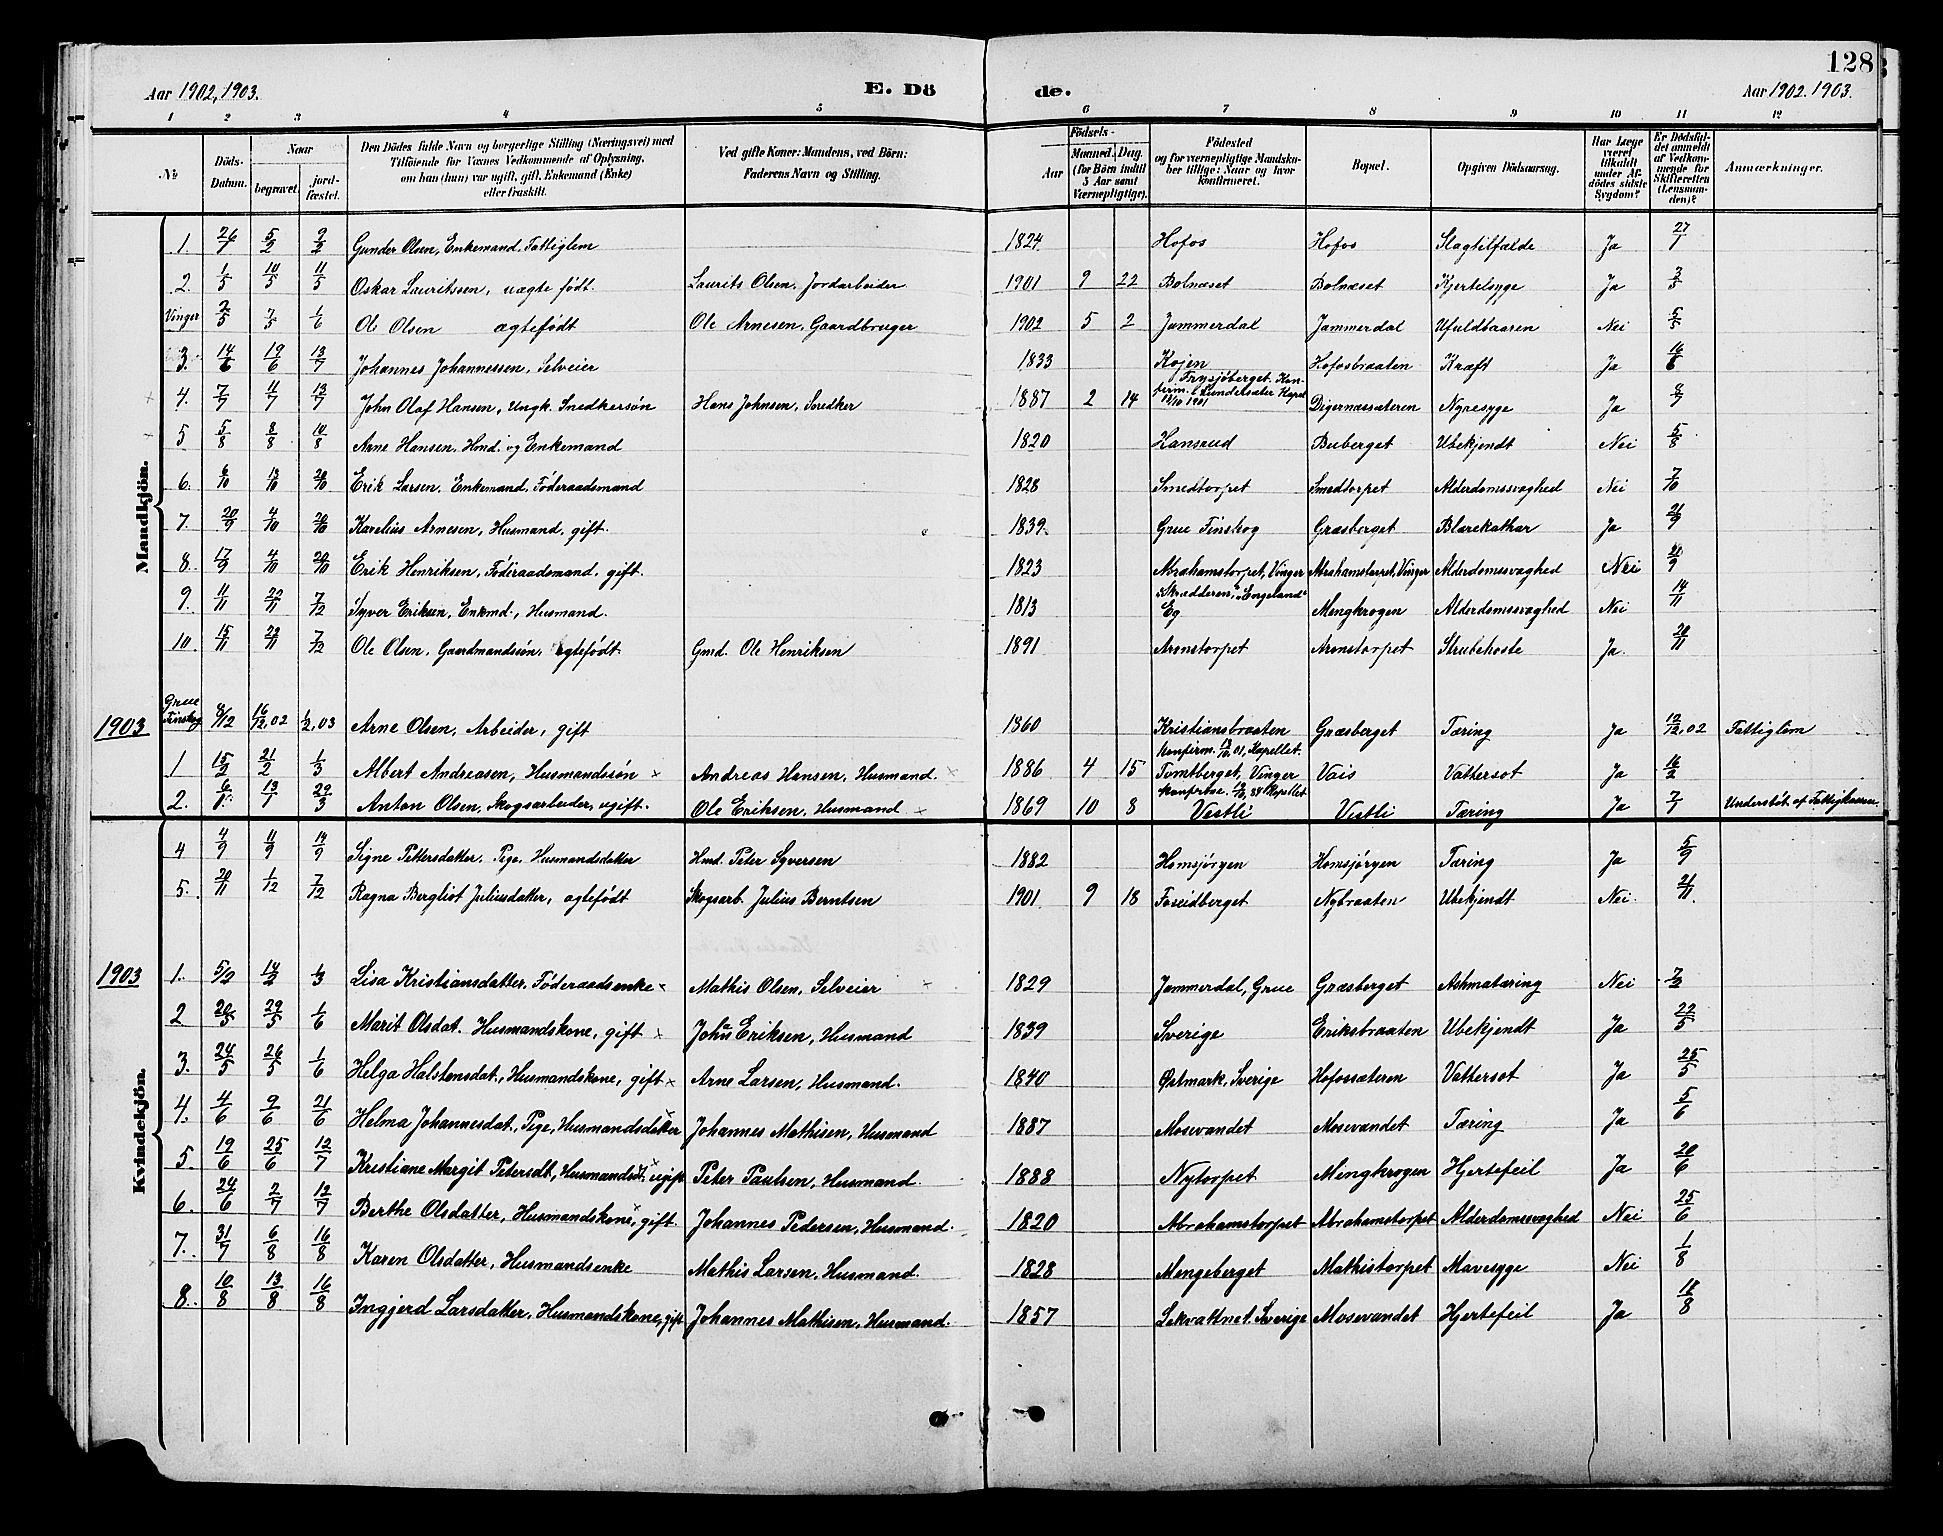 128
Aar 1902, 1903. E. Dö de. Aar 1902. 1903.
1 2 3 4 5 6 7 8 9 10 11 12
№
Döds-Datum.
Naar
begravet.
jord-fæstet.
Den Dödes fulde Navn og borgerlige Stilling (Næringsvei) med
Tilföiende for Voxnes Vedkommende af Oplysning,
om han (hun) var ugift, gift, Enkemand (Enke)
eller fraskilt.
Ved gifte Koner: Mandens, ved Börn:
Faderens Navn og Stilling.
Födsels-
Aar
Maaned. Dag.
(for Börn indtil
5 Aar samt
Værnepligtige).
Födested
og for værnepligtige Mandska-
ber tillige: Naar og hvor
konfirmeret.
Bopæl.
Opgiven Dödsaarsag.
Har Læge
været
tilkaldt
under Af-
dödes sidste
Sygdom?
Er Dödsfal-
det anmeldt
af Vedkom-
mende for
Skifteretten
(Lensman-
den)?
Anmærkninger.
Mandkjön.
1. 26/1 5/2 9/2 Gunder Olsen, Enkemand. Fattiglem 1824. Hofos Hofos Slagtilfælde Ja 27/1
2. 1/5 10/5 11/5 Oskar Lauritssen, uægte født. Laurits Olsen, Jordarbeider 1901 9 22 Bolnæset Bolnæset Kjertelsyge Ja 3/5
Vinger 2/5 7/5 1/6 Ole Olsen ægtefødt Ole Arnesen, Gaardbruger 1902 5 2 Jammerdal Jammerdal Ufuldbaaren Nei 5/5
3. 14/6 19/6 13/7 Johannes Johannessen, Selveier 1833 Kojen Hofosbraaten Kræft Ja 16/6
4. 7/7 11/7 13/7 John Olaf Hansen, Ungk. Snedkersøn Hans Johnsen, Snedker 1887 2 14 Frysjøberget. Kon-
firm. i Lundersæter Kapel
13/10 1901 Digernæssæteren Nyresyge Ja 8/7
5 5/8 8/8 10/8 Arne Hansen, Hmd. og Enkemand 1820 Hansrud Buberget Ubekjendt Nei 5/8
6. 6/10 13/10 20/10 Erik Larsen, Enkemand, Føderaadsmand 1828 Smedtorpet Smedtorpet Alderdomssvaghed Nei 7/10
7. 20/9 4/10 20/10 Karelius Arnesen, Husmand, gift. 1839. Grue Finskog Græsberget Blærekathar Ja 21/9
8. 17/9 4/10 20/10 Erik Henriksen, Føderaadsmand, gift. 1823 Abrahamstorpet, Vinger Abrahamstorpet, Vinger Alderdomssvaghed Nei 20/9
9. 11/11 22/11 7/12 Syver Eriksen, Enkmd., Husmand. 1813 "Skrædderen," "Engeland"
Eg Mengkrogen Alderdomssvaghed Nei 14/11
10. 15/11 22/11 7/12 Ole Olsen, Gaardmandssøn, ægtefødt. Gmd. Ole Henriksen 1891 Aronstorpet Aronstorpet Strubehoste Ja. 20/11
1903 Grue
Finskog 8/12 16/12,02 1/2,03 Arne Olsen, Arbeider, gift 1860 Kristiansbraaten Græsberget Tæring Ja 12/12,02 Fattiglem
1 15/2 21/2 1/3 Albert Andreasen, Husmandssøn × Andreas Hansen, Husmand. × 1886 4 15 konfirm. 13/10 01, Kapellet.
Tomtberget, Vinger Vais Vattersot Ja 16/2
2. 6/1 13/1 29/3 Anton Olsen, Skogsarbeider, ugift. Ole Eriksen, Husmand × 1869 10 8 Kapellet
Vestli Vestli Tæring Ja 7/1 Understöt. af Fattigkassen.
Kvindekjön.
4 4/9 11/9 14/9 Signe Pettersdatter, Pige, Husmandsdatter Hmd. Peter Syversen 1882 Homsjørgen Homsjørgen Tæring Ja 5/9
5. 20/11 1/12 7/12 Ragna Bergliot Juliusdatter, ægtefødt Skogsarb. Julius Berntsen 1901. 9 18 Foseidberget Nybraaten Ubekjendt Nei. 21/11
1903 1. 5/2 14/2 1/3 Lisa Kristiansdatter, Føderaadsenke × Mathis Olsen, Selveier × 1829 Jammerdal, Grue Græsberget Asthmatæring Nei 7/2
2 20/5 29/5 1/6 Marit Olsdat. Husmandskone, gift × John Eriksen, Husmand 1839 Sverige Eriksbraaten Ubekjendt Ja 22/5
3. 24/5 26/5 1/6 Helga Halstensdat., Husmandskone, gift × Arne Larsen, Husmand. 1840 Østmark, Sverige Hofossæteren Vattersot Ja 25/5
4. 4/6 9/6 21/6 Helma Johannesdat., Pige, Husmandsdatter × Johannes Mathisen, Husmand 1887 Mosevandet Mosevandet Tæring Ja 5/6
5. 19/6 25/6 12/7 Kristiane Margit Petersdt, Husmandsdt. × ugift Peter Paulsen, Husmand 1888 Nytorpet Mengkrogen Hjertefeil Ja 20/6
6. 24/6 2/7 12/7 Berthe Olsdatter, Husmandskone, × gift. Johannes Pedersen, Husmand. 1820 Abrahamstorpet Abrahamstorpet Alderdomssvaghed Nei 25/6
7. 31/7 6/8 16/8 Karen Olsdatter, Husmandsenke Mathis Larsen, Husmand. 1828 Mengeberget Mathistorpet Mavesyge Nei 1/8
8. 10/8 13/8 16/8 Inggjerd Larsdatter, Husmandskone, gift Johannes Mathisen, Husmand. 1857 Lekvattnet, Sverige Mosevandet Hjertefeil Ja 18/8